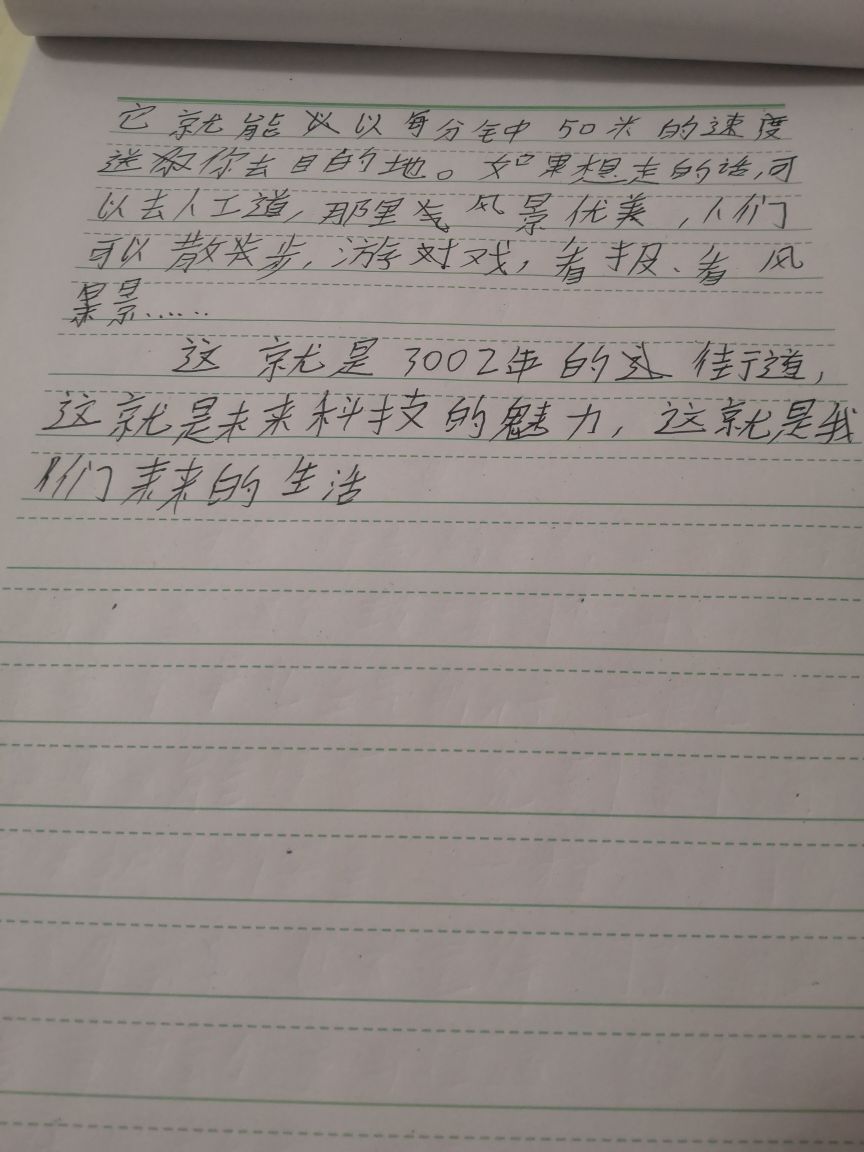 它就能以每分钟50米的速度
送你去目的地。如果想走的话,可
以去人工道,那里风景优美,人们
可以散步,游戏,看报、看风
景……
这就是3002年的街道,
这就是未来科技的魅力,这就是我
们未来的生活